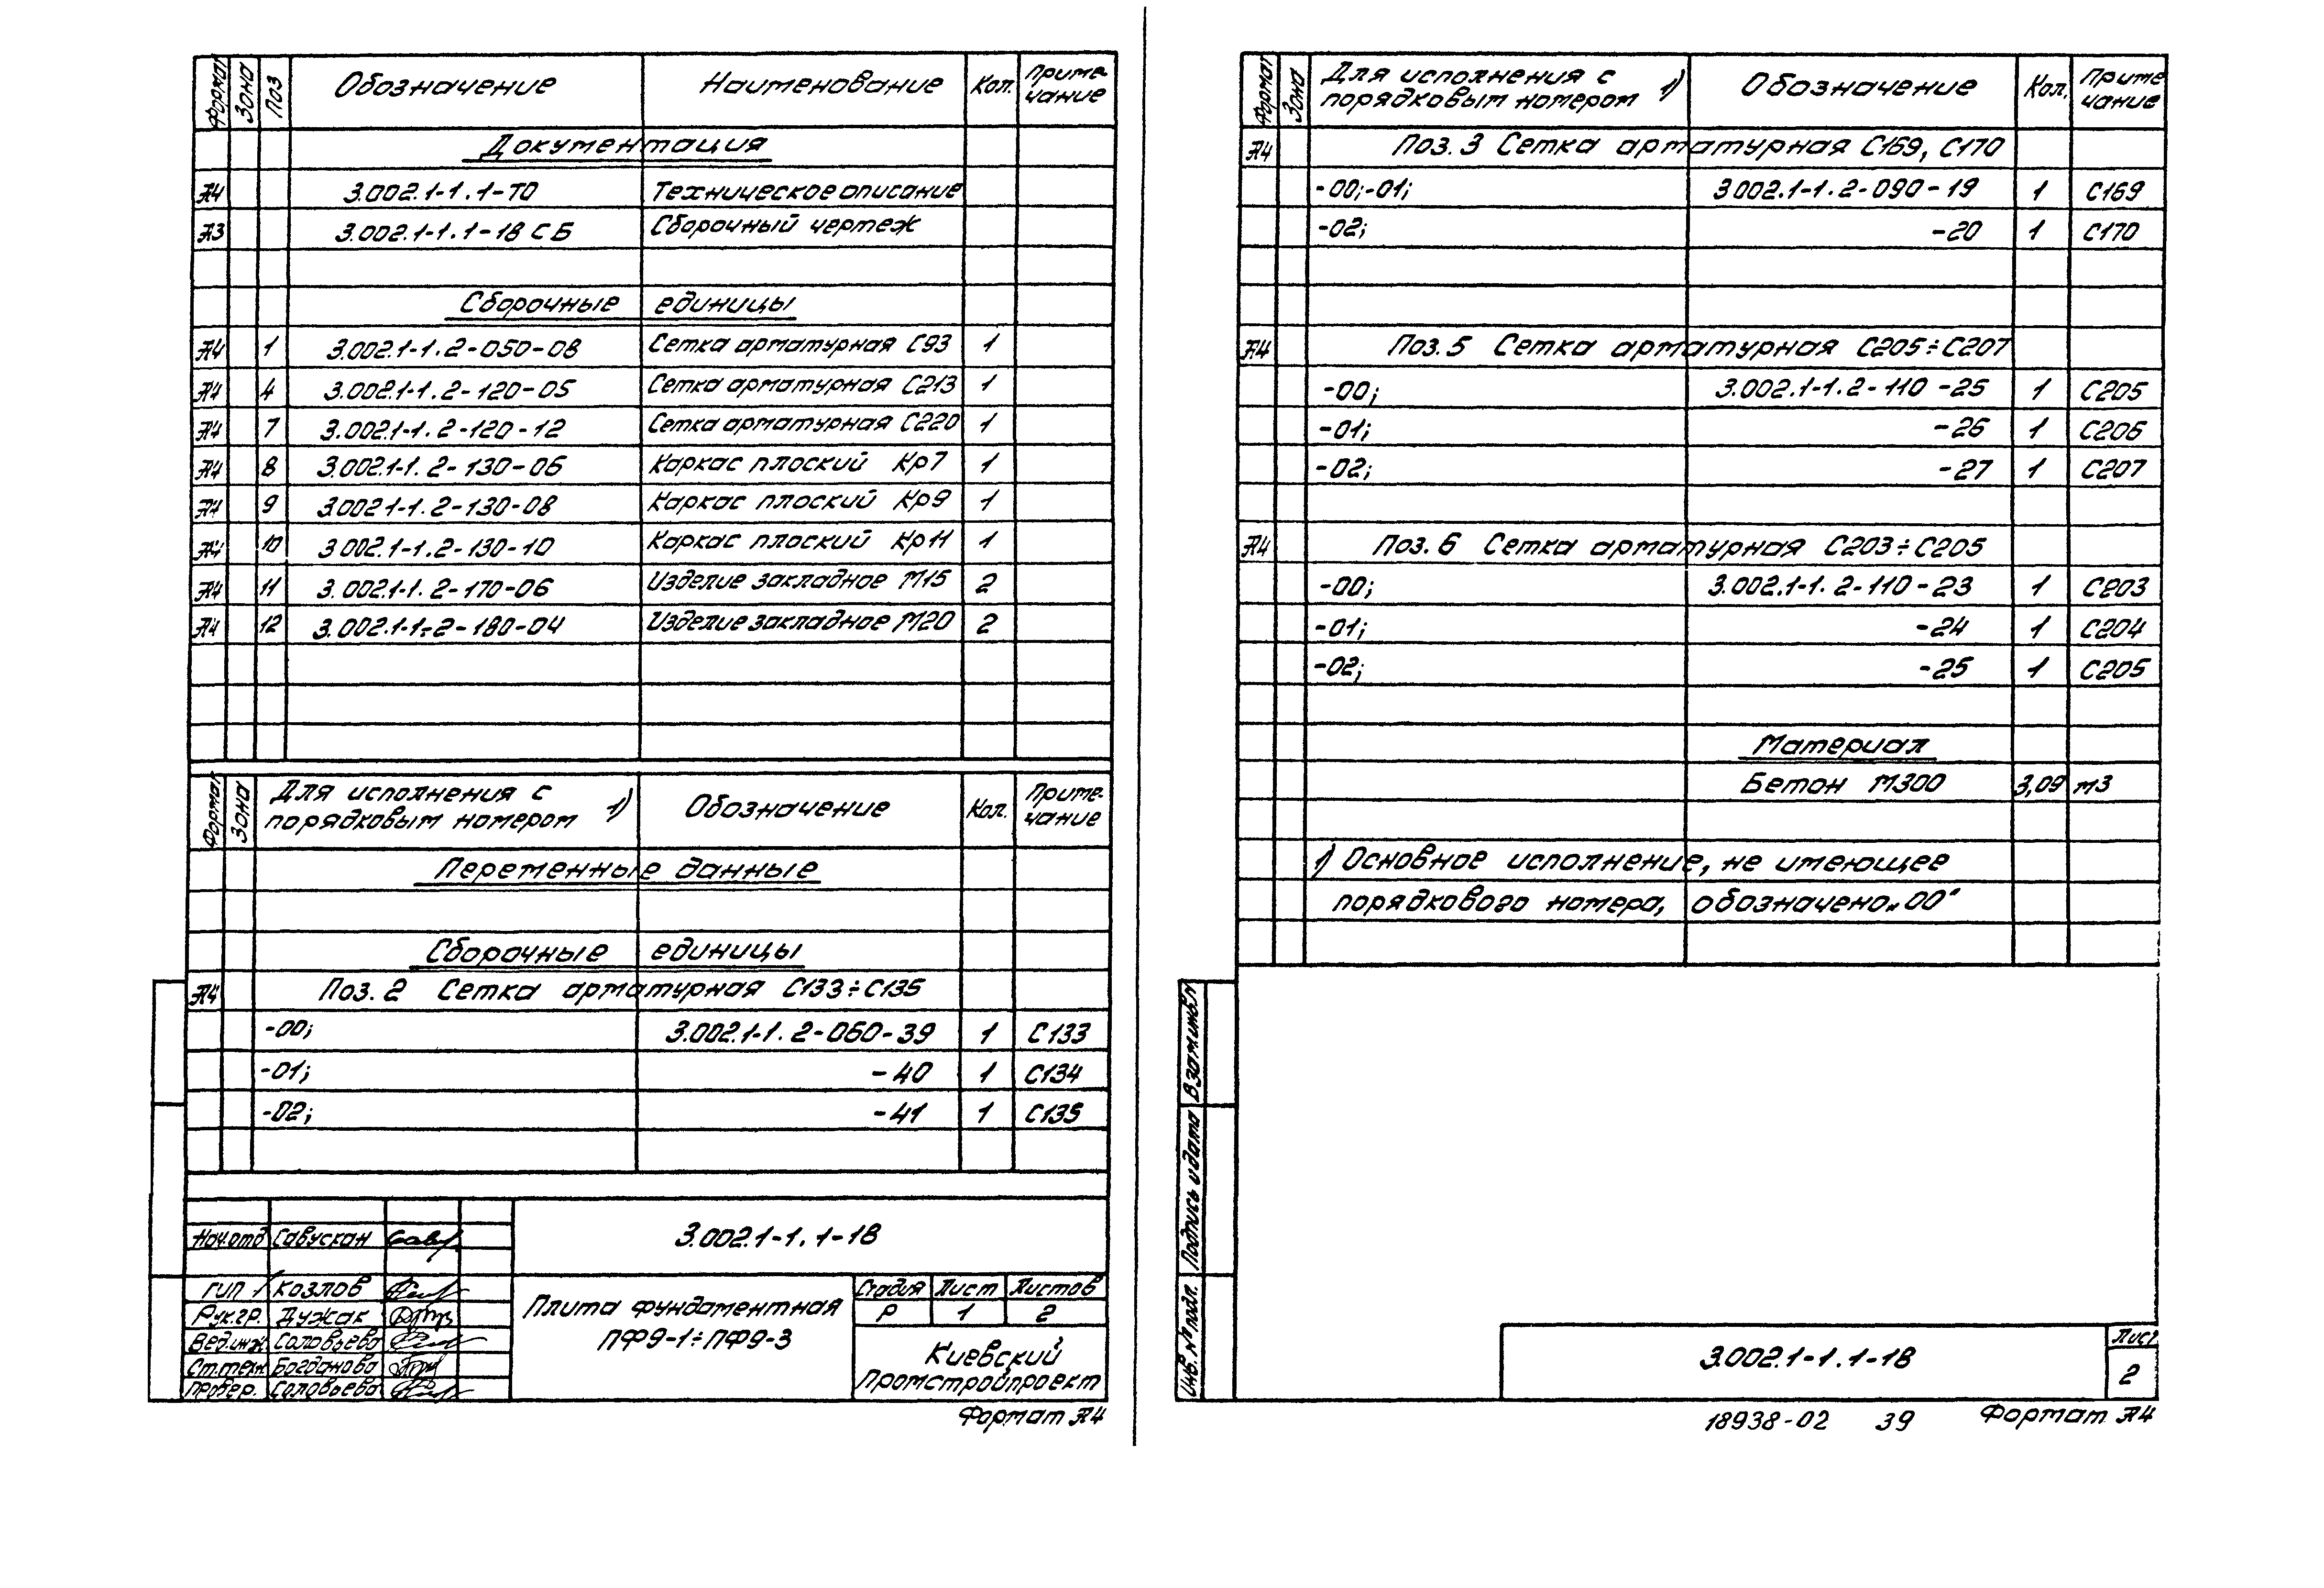 Формат Зона Поз Обозначение Наименование Кол. Примечание
Документация
А4 3.002.1-1.1-ТО Техническое описание
А3 3.002.1-1.1-18 СБ Сборочный чертеж
Сборочные единицы
А4 1 3.002.1-1.2-050-08 Сетка арматурная С93 1
А4 4 3.002.1-1.2-120-05 Сетка арматурная С213 1
А4 7 3.002.1-1.2-120-12 Сетка арматурная С220 1
А4 8 3.002.1-1.2-130-06 Каркас плоский Кр7 1
А4 9 3.002.1-1.2-130-08 Каркас плоский Кр9 1
А4 10 3.002.1-1.2-130-10 Каркас плоский Кр11 1
А4 11 3.002.1-1.2-170-06 Изделие закладное М15 2
А4 12 3.002.1-1.2-180-04 Изделие закладное М20 2
Формат Зона Для исполнения с порядковым номером 1) Обозначение Кол. Примечание
Переменные данные
Сборочные единицы
А4 Поз. 2 Сетка арматурная С133÷С135
-00; 3.002.1-1.2-060-39 1 С133
-01; -40 1 С134
-02; -41 1 С135
3.002.1-1.1-18
Нач.отд Савускан
ГИП Козлов
Рук.гр. Дужак
Вед.инж. Соловьева
Ст.техн. Богданова
Провер. Соловьева
Плита фундаментная
ПФ9-1÷ПФ9-3
Стадия Лист Листов
Р 1 2
Киевский
Промстройпроект
Формат А4
Формат Зона Для исполнения с порядковым номером 1) Обозначение Кол. Примечание
А4 Поз. 3 Сетка арматурная С169, С170
-00;-01; 3.002.1-1.2-090-19 1 С169
-02; -20 1 С170
А4 Поз. 5 Сетка арматурная С205÷С207
-00; 3.002.1-1.2-110-25 1 С205
-01; -26 1 С206
-02; -27 1 С207
А4 Поз. 6 Сетка арматурная С203÷С205
-00; 3.002.1-1.2-110-23 1 С203
-01; -24 1 С204
-02; -25 1 С205
Материал
Бетон М300 3,09 м3
1) Основное исполнение, не имеющее
порядкового номера, обозначено „00“
Взам.инв.№
Подпись и дата
Инв.№ подл.
3.002.1-1.1-18
Лист
2
18938-02 39 Формат А4